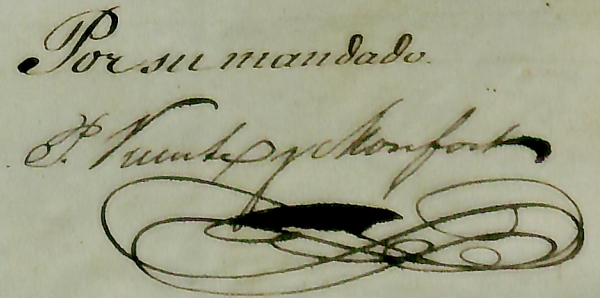 Por su mandado.
P. Vicente y Monfort